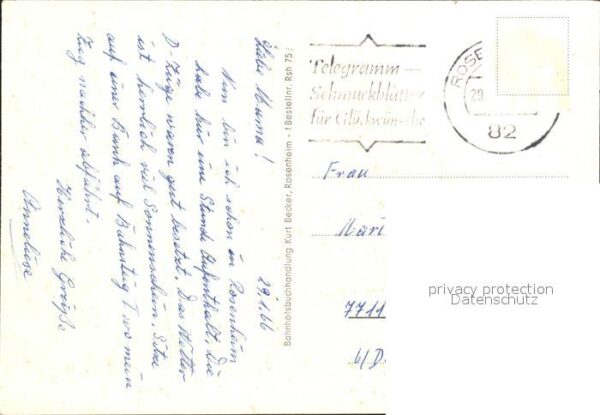 29.1.66
Liebe Mama!
Nun bin ich schon in Rosenheim
habe hier eine Stunde Aufenthalt. Die
D-Züge waren gut besetzt. Das Wetter
ist herrlich viel Sonnenschein. Sitze
auf einer Bank auf Bahnsteig I wo mein
Zug nachher abfährt.
Herzliche Grüße
Anneliese
Bahnhofsbuchhandlung Kurt Becker, Rosenheim - 1 Bestellnr. Rsh 75
Telegramm-
Schmuckblätter
für Glückwünsche
ROSE
29.
82
Frau
Mari
7711
b/D
privacy protection
Datenschutz